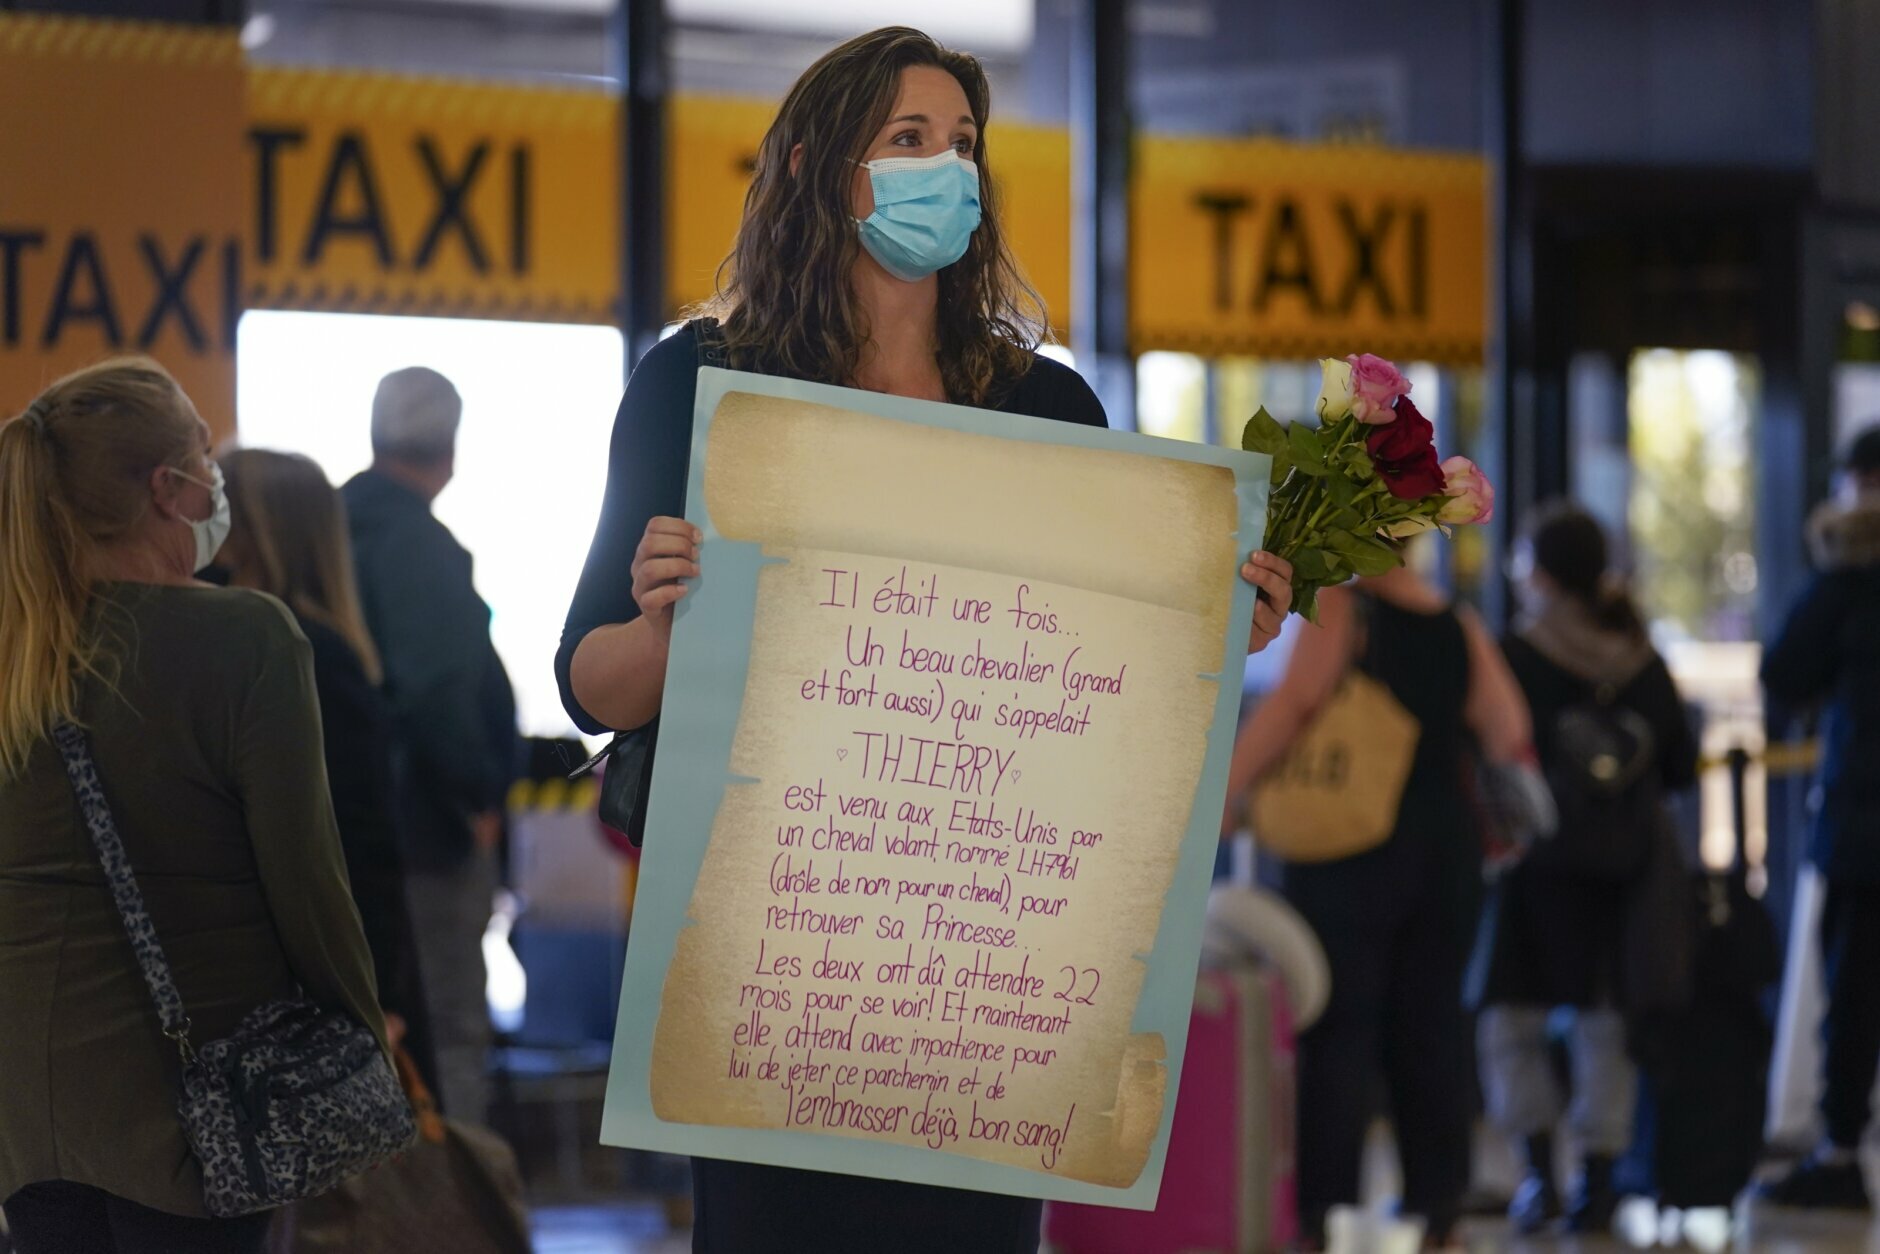 TAXI
TAXI
TAXI
Il était une fois...
Un beau chevalier (grand
et fort aussi) qui s'appelait
♡ THIERRY ♡
est venu aux Etats-Unis par
un cheval volant, nommé LH7961
(drôle de nom pour un cheval), pour
retrouver sa Princesse...
Les deux ont dû attendre 22
mois pour se voir! Et maintenant
elle attend avec impatience pour
lui de jeter ce parchemin et de
l'embrasser déjà, bon sang!